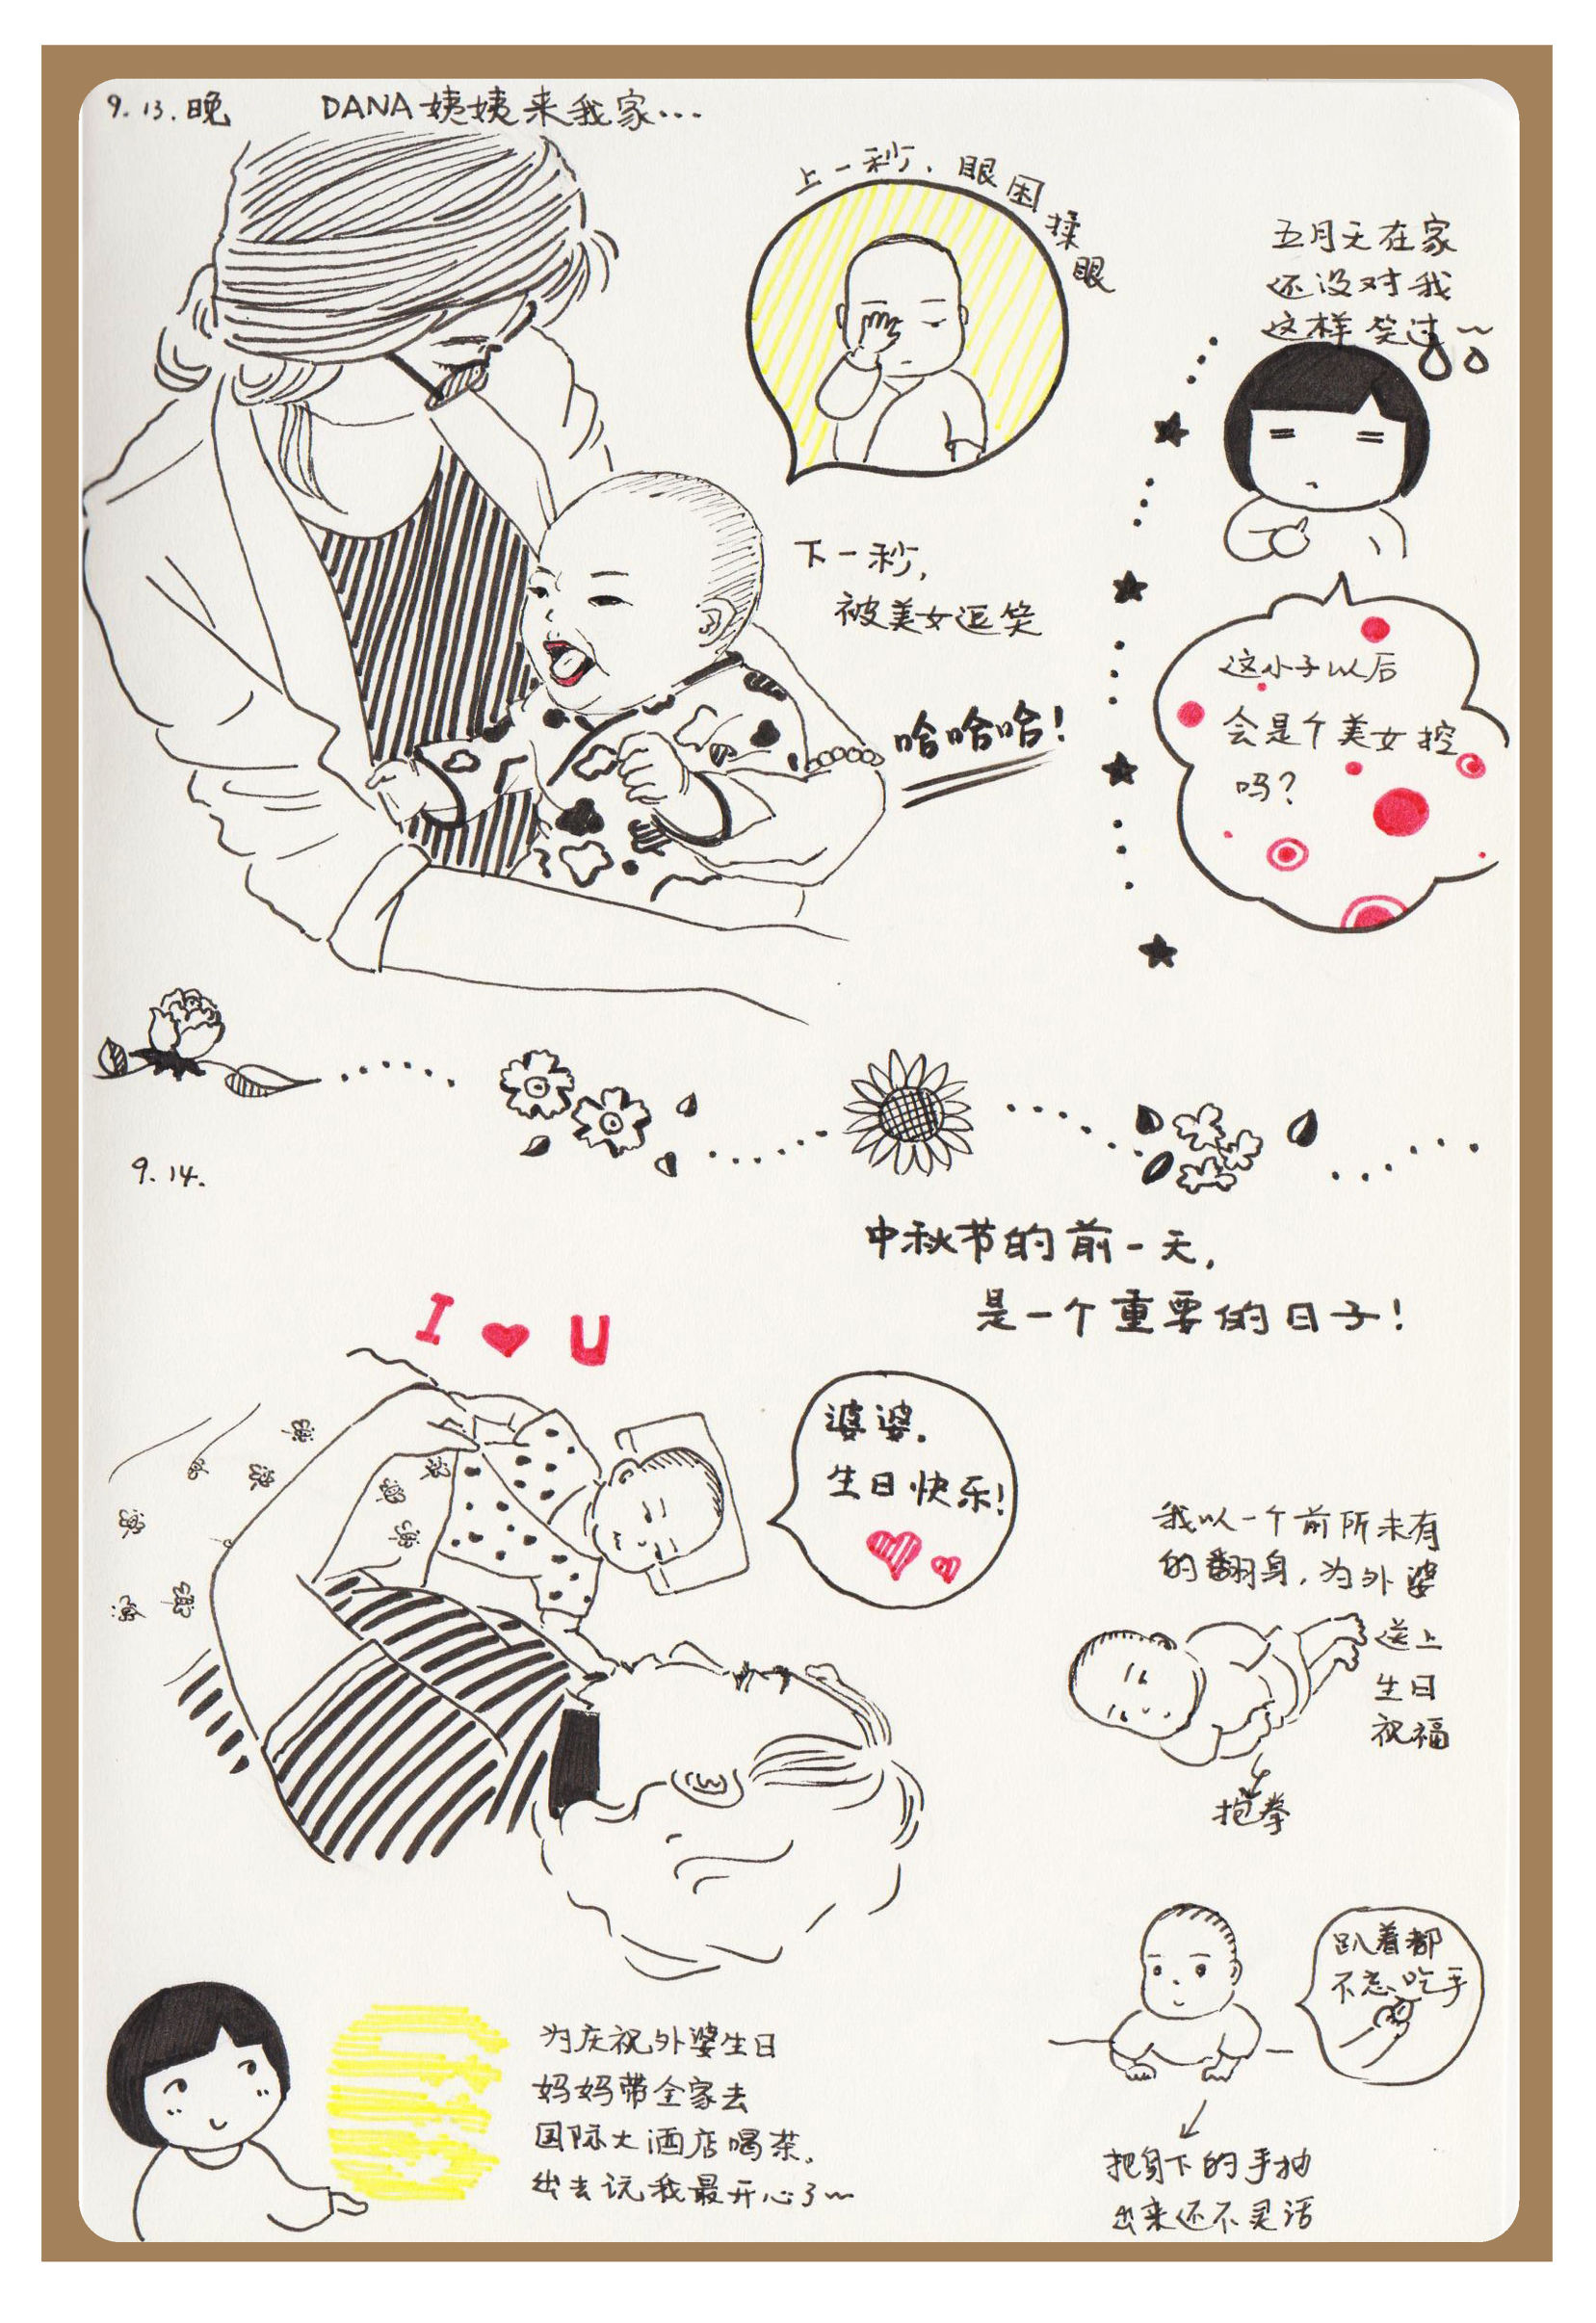 9.13.晚 DANA姨姨来我家…
上一秒，眼困揉眼
五月天在家
还没对我
这样笑过~
下一秒，
被美女逗笑
哈哈哈！
这小子以后
会是个美女控
吗？
9.14.
中秋节的前一天，
是一个重要的日子！
I ♥ U
婆婆，
生日快乐！
我以一个前所未有
的翻身，为外婆
送上
生日
祝福
抱拳
趴着都
不忘吃手
把身下的手抽
出来还不灵活
为庆祝外婆生日
妈妈带全家去
国际大酒店喝茶，
出去玩我最开心了~